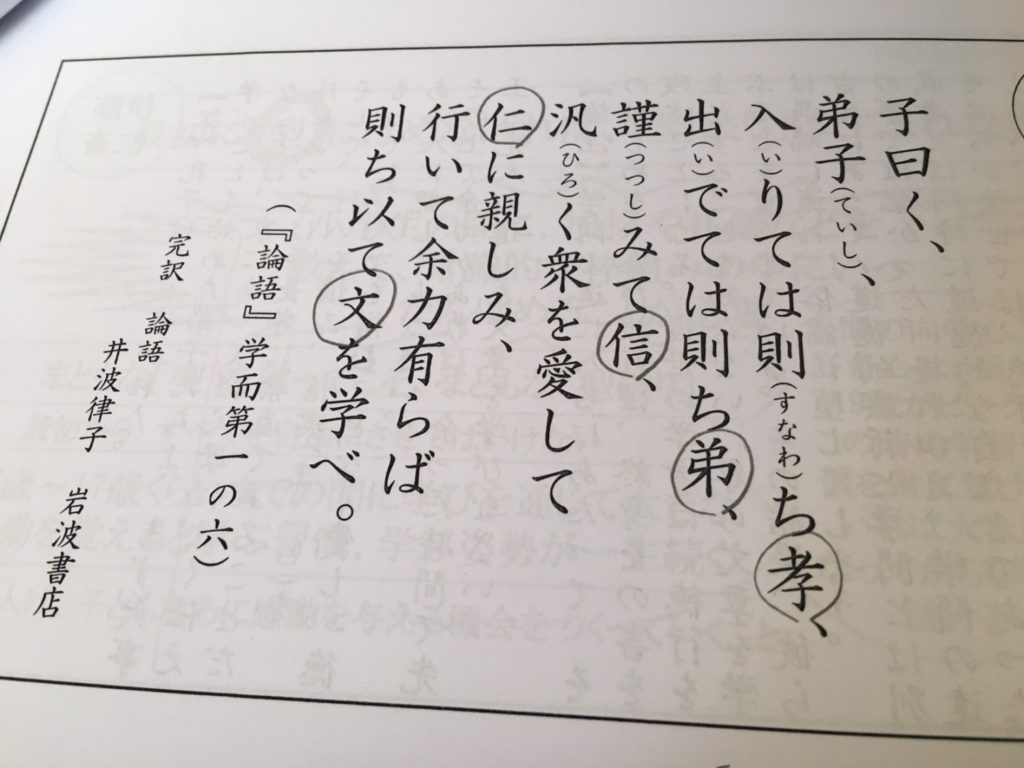 子曰く、
弟子(ていし)、
入(い)りては則(すなわ)ち孝、
出(い)でては則ち弟、
謹(つつし)みて信、
汎(ひろ)く衆を愛して
仁に親しみ、
行いて余力有らば
則ち以て文を学べ。
(『論語』学而第一の六)
完訳 論語
井波律子 岩波書店